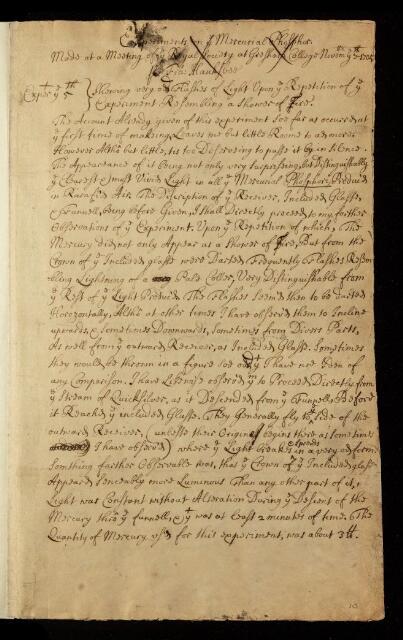 Experiments on yͤ Mercurial Phosphor.
Made at a Meeting of yͤ Royal Society at Gresham College Novem yͤ 7th 1705
Fra: Hauksbee
Experᵗ yͤ 5th } Shewing very odd Flashes of Light Upon yͤ Repetition of yͤ
Experiment Resembling a Shower of Fire.
The Account Already given of this experiment Soe far as occured at
yͤ first time of making, Leaves me but little Roome to add more:
However Altho but little, tis too Deserving to pass it by in silence.
The Appearance of it Being not only very Surprising, but Distinguishably
yͤ Largest & most Vivid Light in all yͤ Mercurial Phosphori Produced
in Rarafied Air. The Discription of yͤ Receiver, Included Glass,
& Funnell, Being before Given, I shall Directly proceed to my further
Observations of yͤ Experiment. Upon yͤ Repetition of which, The
Mercury did not only Appear as a Shower of Fire, But from the
Crown of yͤ Included glass were Darted Frequently Flashes Resem
bling Lightning of a Pale Coller, Very Distinguishable from
yͤ Rest of yͤ Light Produced. The Flashes seem'd then to be Darted
Horizontally, Altho at other times I have observ'd them to Incline
upwards, & Sometimes Downwards, Sometimes from Divers Parts,
As well from yͤ outward Receiver, as Included Glass. Sometimes
they would be thrown in a figure soe odd yᵗ I have not Seen of
any Comparison. I have Likewise observ'd yᵐ to Proceed Directly from
yͤ Stream of Quicksilver, as it Descended from yͤ Funnell Before
it Reach'd yͤ included Glass. They Generally fly to yͤ Side of the
outward Receiver, (unless their Origine begins there as sometimes
I have observed) where yͤ Light Breaks & spreads in a very od form.
Somthing farther Observable was, that yͤ Crown of yͤ Included glass
Appear'd Senceably more Luminous Than any other part of it, &
Light was Constant without Alteration During yͤ Descent of the
Mercury thro' yͤ funnell, & yᵗ was at Least 2 minutes of time. The
Quantity of Mercury us'd for this experiment, was about 3ˡˡ.